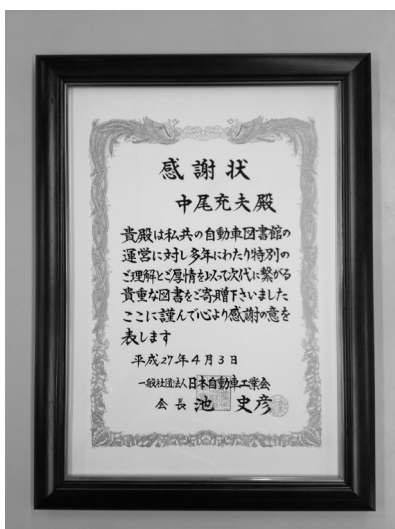 感謝状
中尾充夫殿
貴殿は私共の自動車図書館の
運営に対し多年にわたり特別の
ご理解とご厚情を以て次代に繋がる
貴重な図書をご寄贈下さいました
ここに謹んで心より感謝の意を
表します
平成27年4月3日
一般社団法人日本自動車工業会
会長 池 史彦